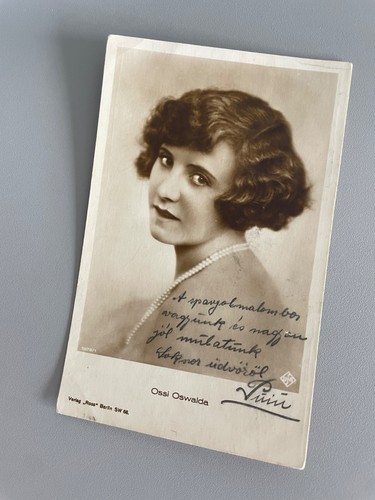 A spanyolmalomban
vagyunk és nagyon
jól mulatunk
Sokszor üdvözöl
Pûiú
Ossi Oswalda
Verlag „Ross“ Berlin SW 68.